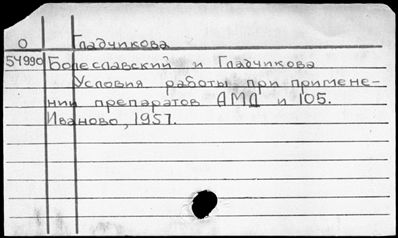 О Гладчикова
54990 Болеславский и Гладчикова
Условия работы при примене-
нии препаратов АМД и 105.
Иваново, 1957.